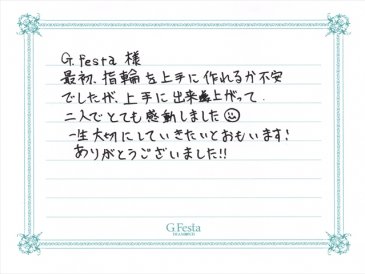 G.Festa 様
最初、指輪を上手に作れるか不安
でしたが、上手に出来上がって
二人でとても感動しました☺
一生大切にしていきたいとおもいます!
ありがとうございました!!
G.Festa